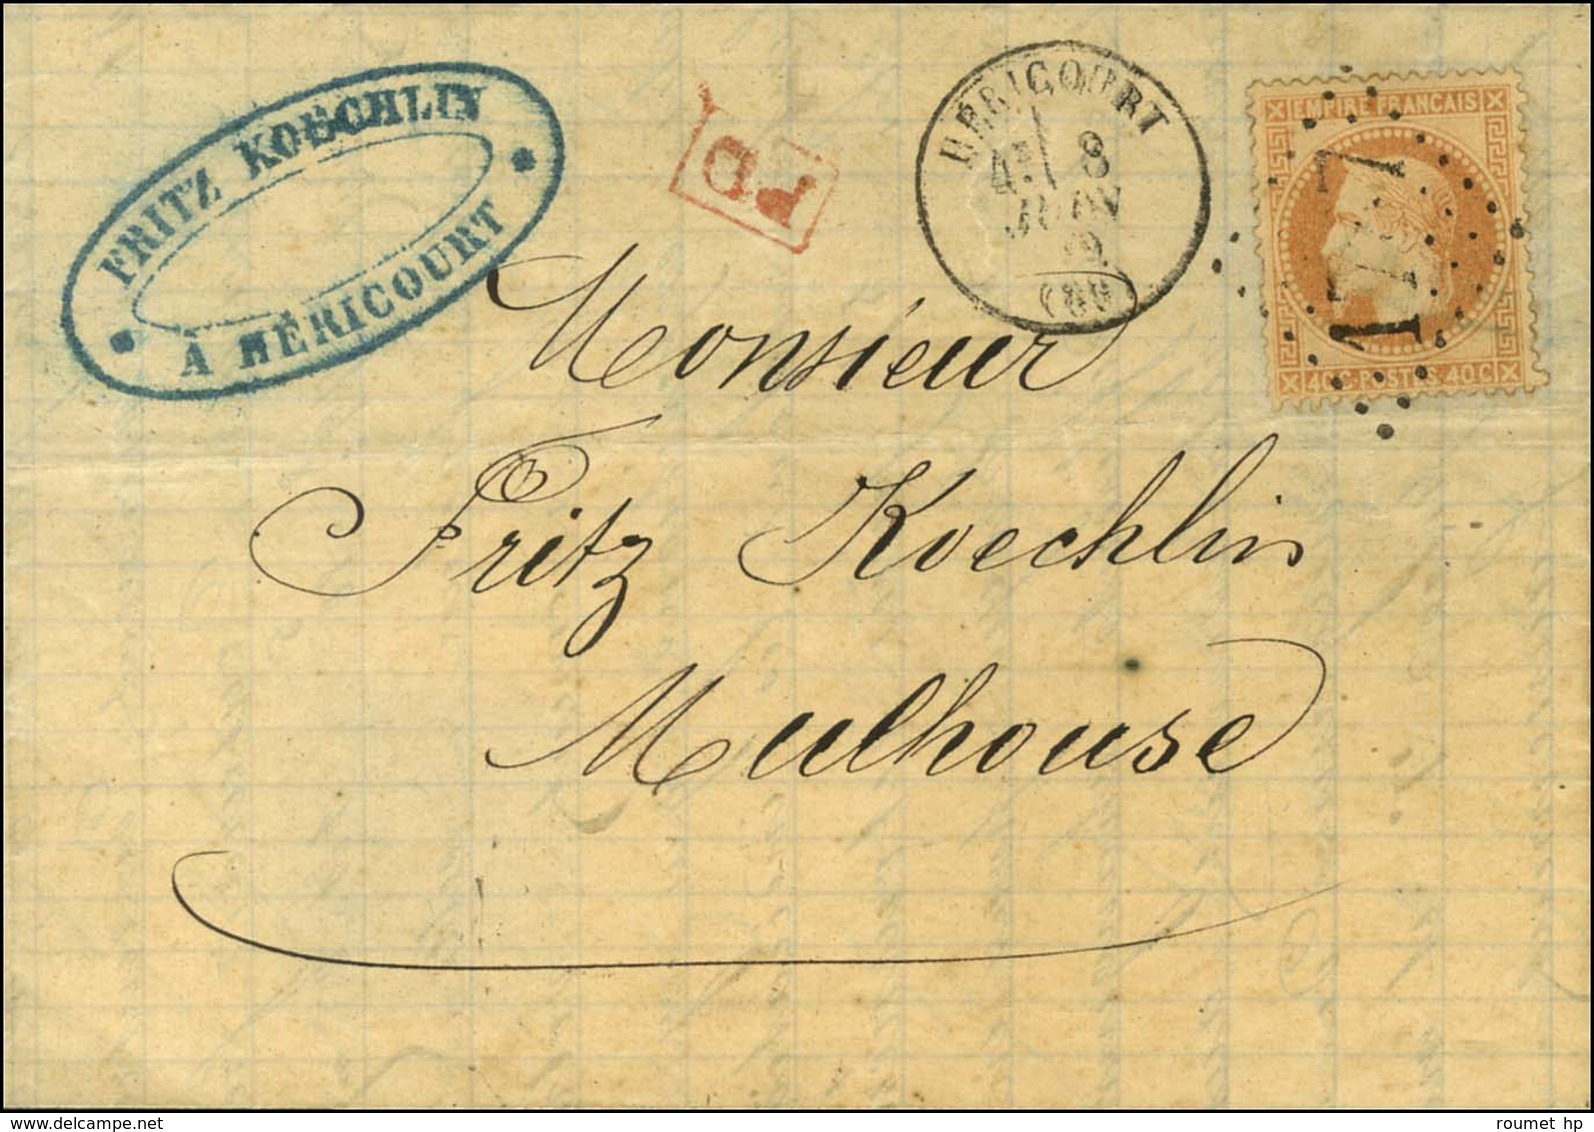 FRITZ KOECHLIN
À HÉRICOURT
PD
HÉRICOURT
4E 8
JUIN
EMPIRE FRANÇAIS
40 C. POSTES 40 C
Monsieur
Fritz Koechlin
Mulhouse
roumet hp